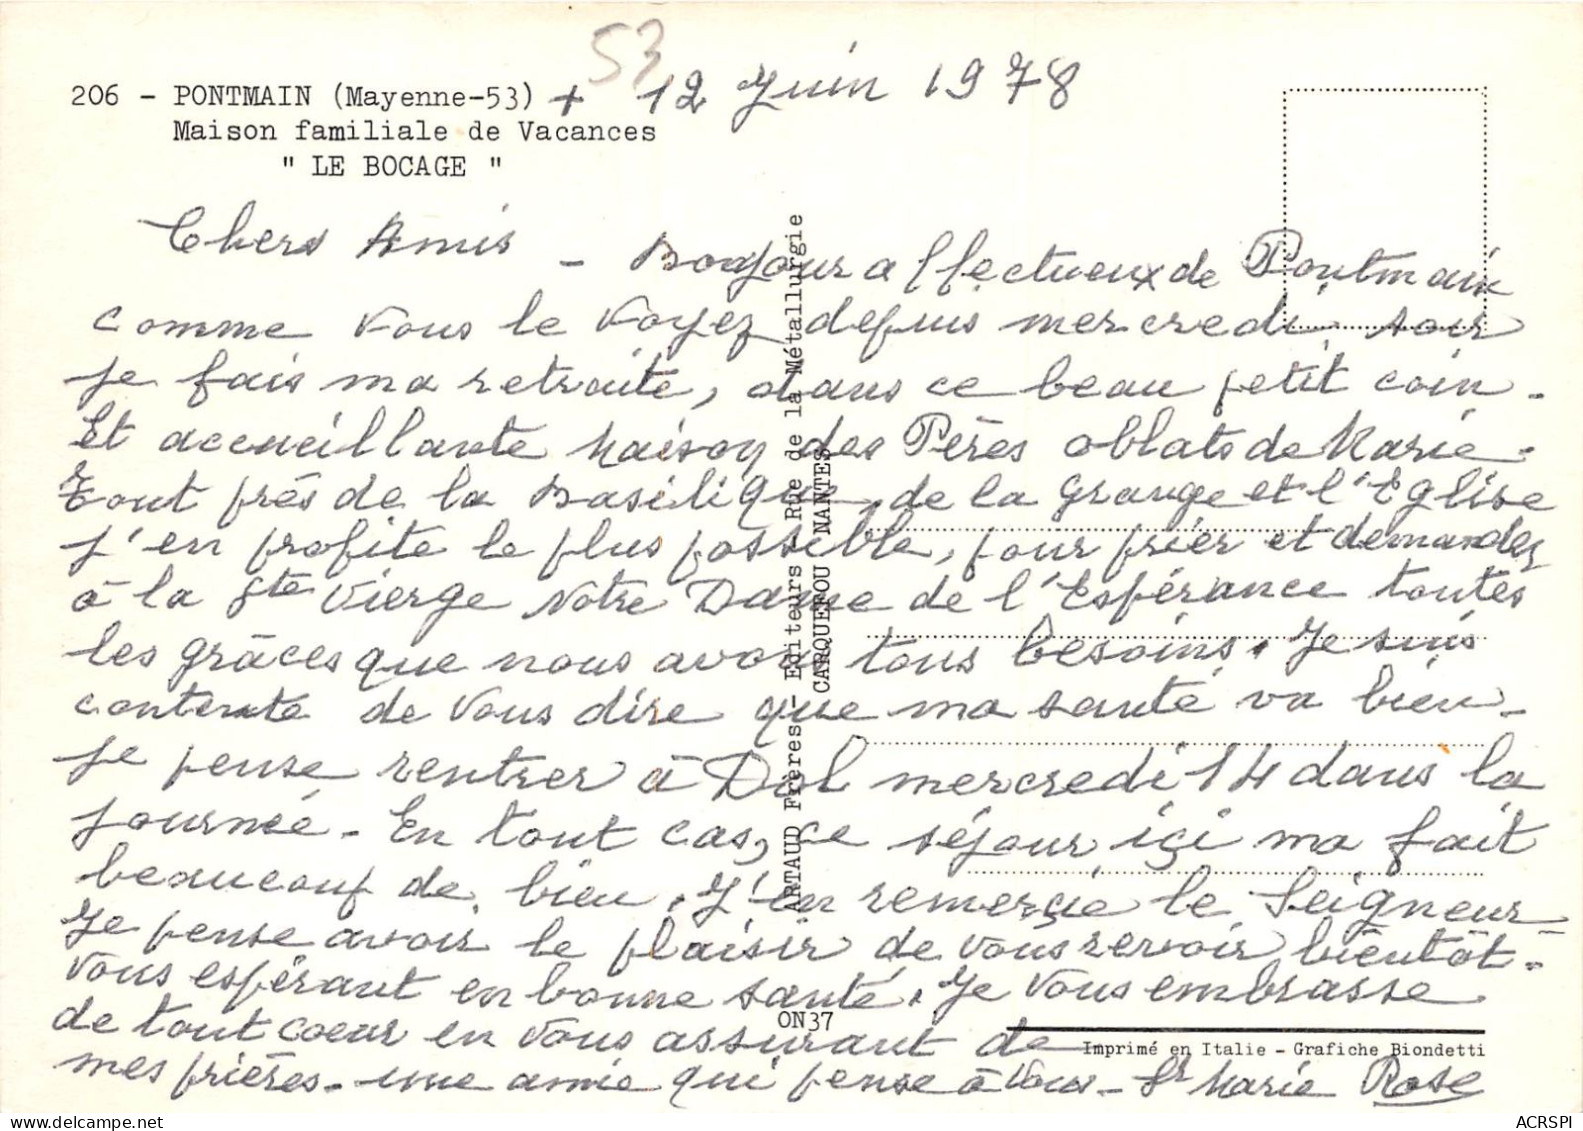 53
206 - PONTMAIN (Mayenne-53) + 12 Juin 1978
Maison familiale de Vacances
" LE BOCAGE "
Chers Amis - Bonjour affectueux de Pontmain
comme vous le voyez depuis mercredi soir
je fais ma retraite, dans ce beau petit coin.
Et accueillante Maison des Pères oblats de Marie.
Tout près de la Basilique, de la Grange et l'Eglise
j'en profite le plus possible, pour prier et demander
à la Ste Vierge Notre Dame de l'Espérance toutes
les grâces que nous avons tous besoins. Je suis
contente de vous dire que ma santé va bien -
je pense rentrer à Dol mercredi 14 dans la
journée - En tout cas, ce séjour içi ma fait
beaucoup de bien. J'en remerçie le Seigneur -
Je pense avoir le plaisir de vous revoir bientôt -
vous espérant en bonne santé. Je vous embrasse
de tout coeur en vous assurant de
mes prières - une amie qui pense à vous - Sr Marie Rose
ARTAUD Frères - Editeurs Rue de la Métallurgie
CARQUEFOU NANTES
ON37
Imprimé en Italie - Grafiche Biondetti
ACRSPI